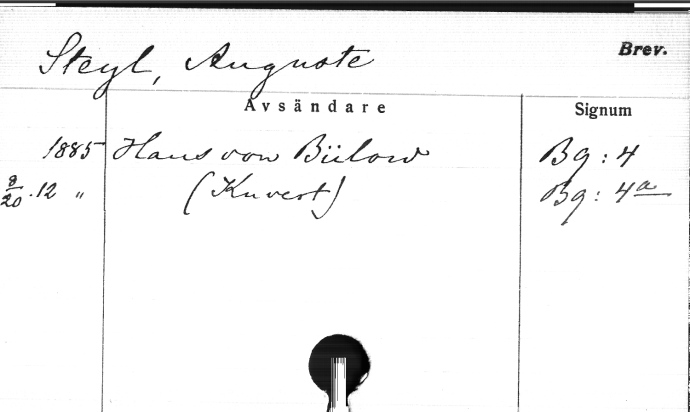 Steyl, Auguste Brev.
Avsändare Signum
1885 Hans von Bülow Bg: 4
9/20.12 " (Kuvert) Bg: 4a